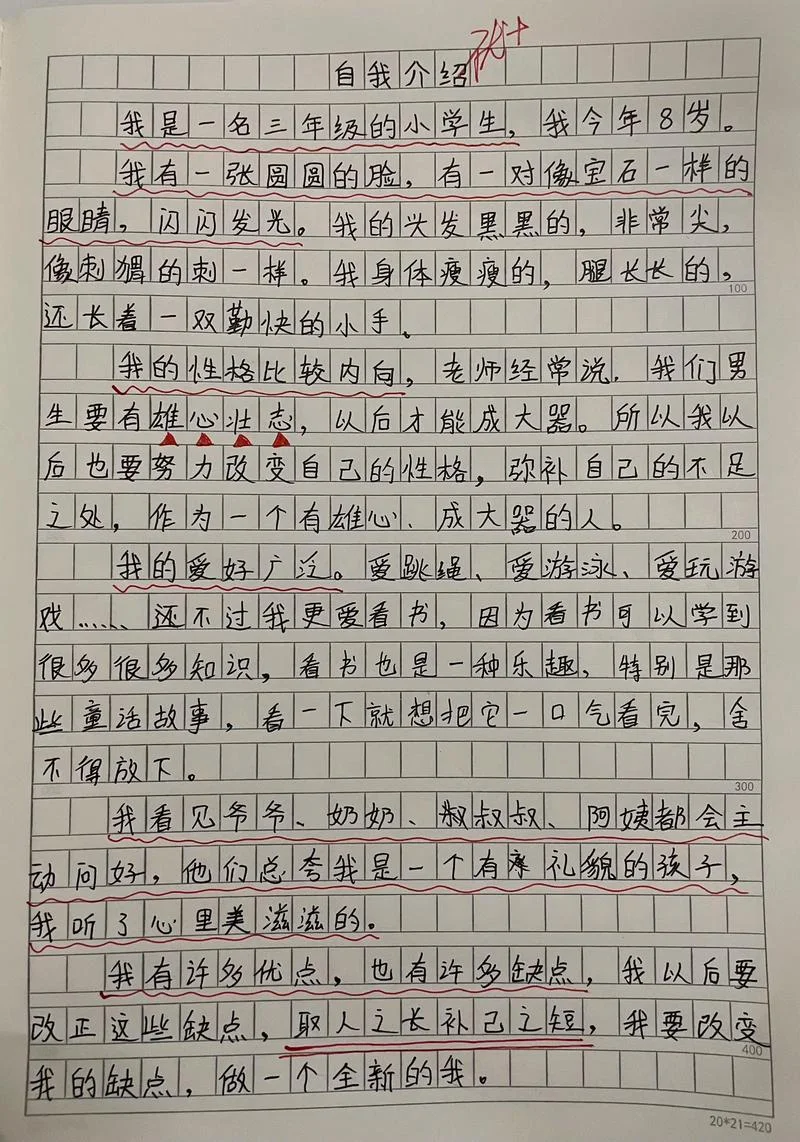 自我介绍 优+
我是一名三年级的小学生，我今年8岁。
我有一张圆圆的脸，有一对像宝石一样的
眼睛，闪闪发光。我的头发黑黑的，非常尖，
像刺猬的刺一样。我身体瘦瘦的，腿长长的，
100
还长着一双勤快的小手。
我的性格比较内向，老师经常说，我们男
生要有雄心壮志，以后才能成大器。所以我以
后也要努力改变自己的性格，弥补自己的不足
之处，作为一个有雄心、成大器的人。
200
我的爱好广泛。爱跳绳、爱游泳、爱玩游
戏……、还不过我更爱看书，因为看书可以学到
很多很多知识，看书也是一种乐趣，特别是那
些童话故事，看一下就想把它一口气看完，舍
不得放下。
300
我看见爷爷、奶奶、叔叔叔、阿姨都会主
动问好，他们总夸我是一个有礼貌的孩子，
我听了心里美滋滋的。
我有许多优点，也有许多缺点，我以后要
改正这些缺点，取人之长补己之短，我要改变
400
我的缺点，做一个全新的我。
20*21=420